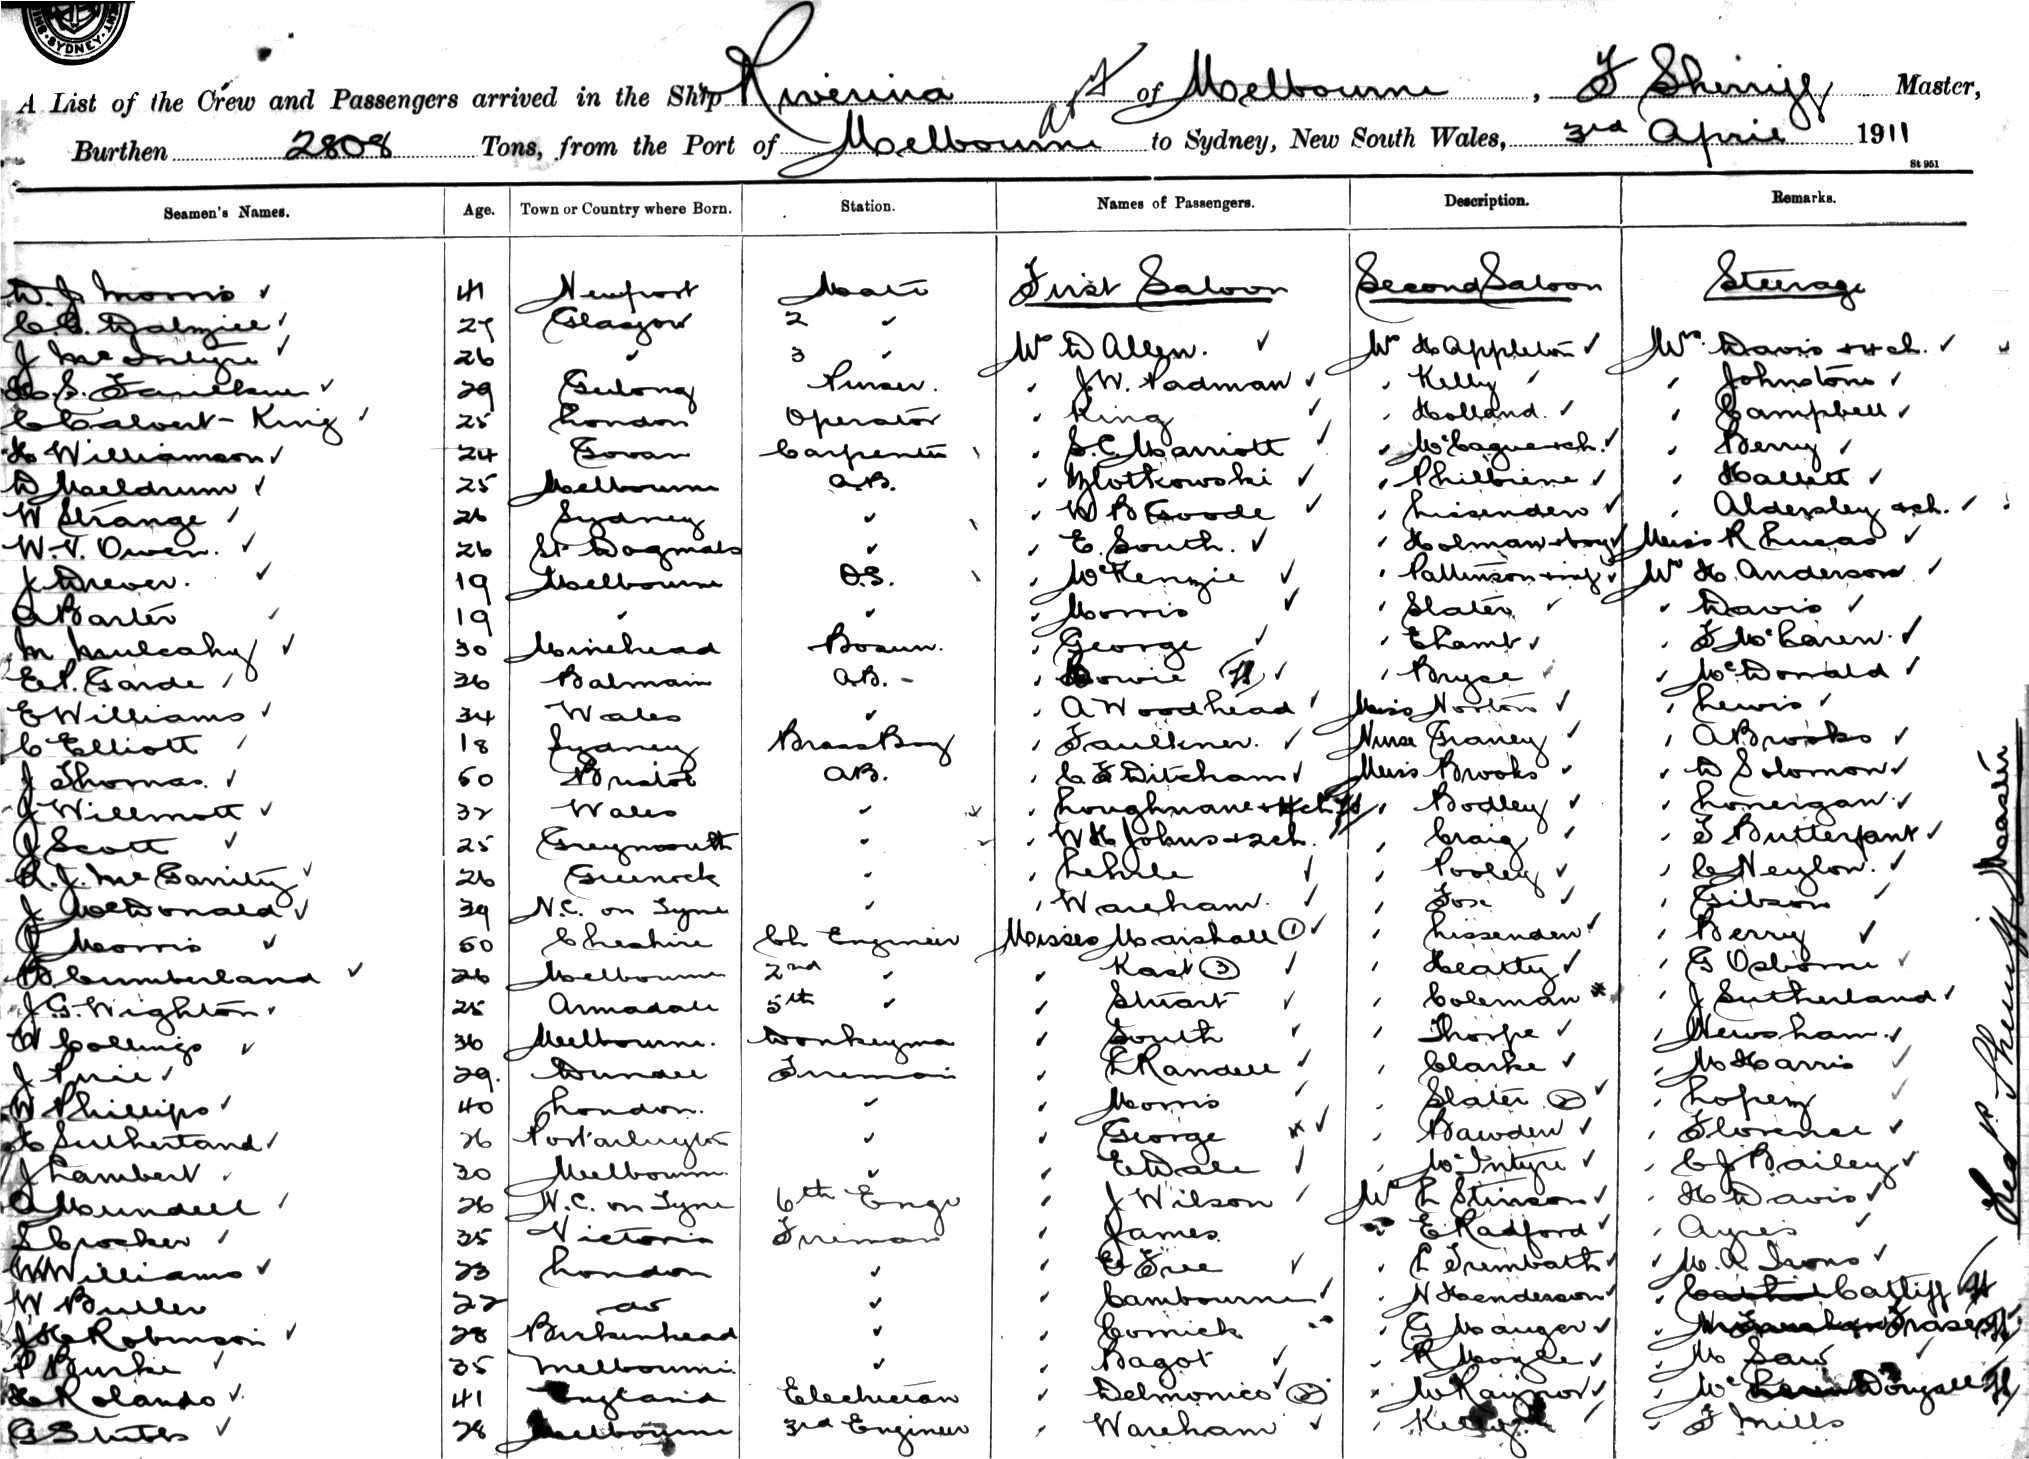 SYDNEY
A List of the Crew and Passengers arrived in the Ship Riverina of Melbourne, F Sherriff Master,
Burthen 2808 Tons, from the Port of Melbourne to Sydney, New South Wales, 3rd April 1911
St 951
Seamen's Names. Age. Town or Country where Born. Station. Names of Passengers. Description. Remarks.
D. J. Morris 41 Newport Mate First Saloon Second Saloon Steerage
C. C. Dalziell 27 Glasgow 2 ✓
J McIntyre 26 ✓ 3 ✓ Mr D Allen. Mr H Appleton Mrs Davis + ch.
H. S. Faulkner 29 Geelong Purser. J. W. Padman Kelly Johnstone
C Calvert-King 25 London Operator King Holland. Campbell
H Williamson 24 Govan Carpenter S. C. Marriott McCague + ch. Berry
D Meldrum 25 Melbourne A.B. Zlotkowski Philbiene Hallett
W Strange 26 Sydney ✓ W B Goode Lissenden Aldersley + ch.
W. V. Owen. 26 St Dogmals ✓ E. South. Holman + boy Miss R Lucas
J Drever. 19 Melbourne O.S. McKenzie Pattinson + inf Mr H Anderson
A Barter 19 ✓ ✓ Morris Slater Davis
M Mulcahy 30 Minehead Bosun. George E Lamb F McLaren.
E. P. Garde 26 Balmain A.B. Bowie Bryce McDonald
E Williams 34 Wales ✓ A Woodhead Miss Norton Lewis
C Elliott 18 Sydney Brass Boy Faulkner. Nurse Graney A Brooks
J Thomas. 50 Bristol A.B. C F Ditcham Miss Brooks D Solomon
J Willmott 32 Wales Loughnane + 4 ch. Bodley Lonergan
J Scott 25 Greymouth W H Johns + 2 ch. Craig F Butterfant
R. J. McGarrity 26 Greenock Lehile Pooley C Neylon.
J McDonald 39 N.C. on Tyne Wareham. Fox Gibson
J Morris 50 Cheshire Ch Engineer Misses Marshall 1 Lissenden Berry
B Cumberland 26 Melbourne 2nd ✓ Kast 3 Heatty G Osborne
J. G. Wighton 25 Armadale 5th ✓ Stuart Coleman J Sutherland
W Collings 36 Melbourne. Donkeyman South Thorpe Newsham
J Pirie 29. Dundee Fireman L Randell Clarke M Harris
W Phillips 40 London. ✓ Morris Slater 2 Lopez
H Sutherland 26 Portarlington ✓ George Bawden Florence
J Lambert 30 Melbourne ✓ E Dale McIntyre C J Bailey
A Mundell 26 N.C. on Tyne 6th Engr J Wilson Mr L Stinson H Davis
S Crocker 35 Victoria Fireman James E Radford Ayres
W Williams 23 London ✓ E Free L Trembath M. A. Irons
W Butler 22 do ✓ Cambourne N Henderson Catliff
J H Robinson 28 Birkenhead ✓ Cornick G Mauger Fraser
P Burke 35 Melbourne ✓ Bagot R Moyle M Saw
H Rolando 41 England Electrician Delmonico 2 M Raynor McDougall
G Shutes 28 Melbourne 3rd Engineer Wareham Kelly F Mills
Fred Sherriff Master